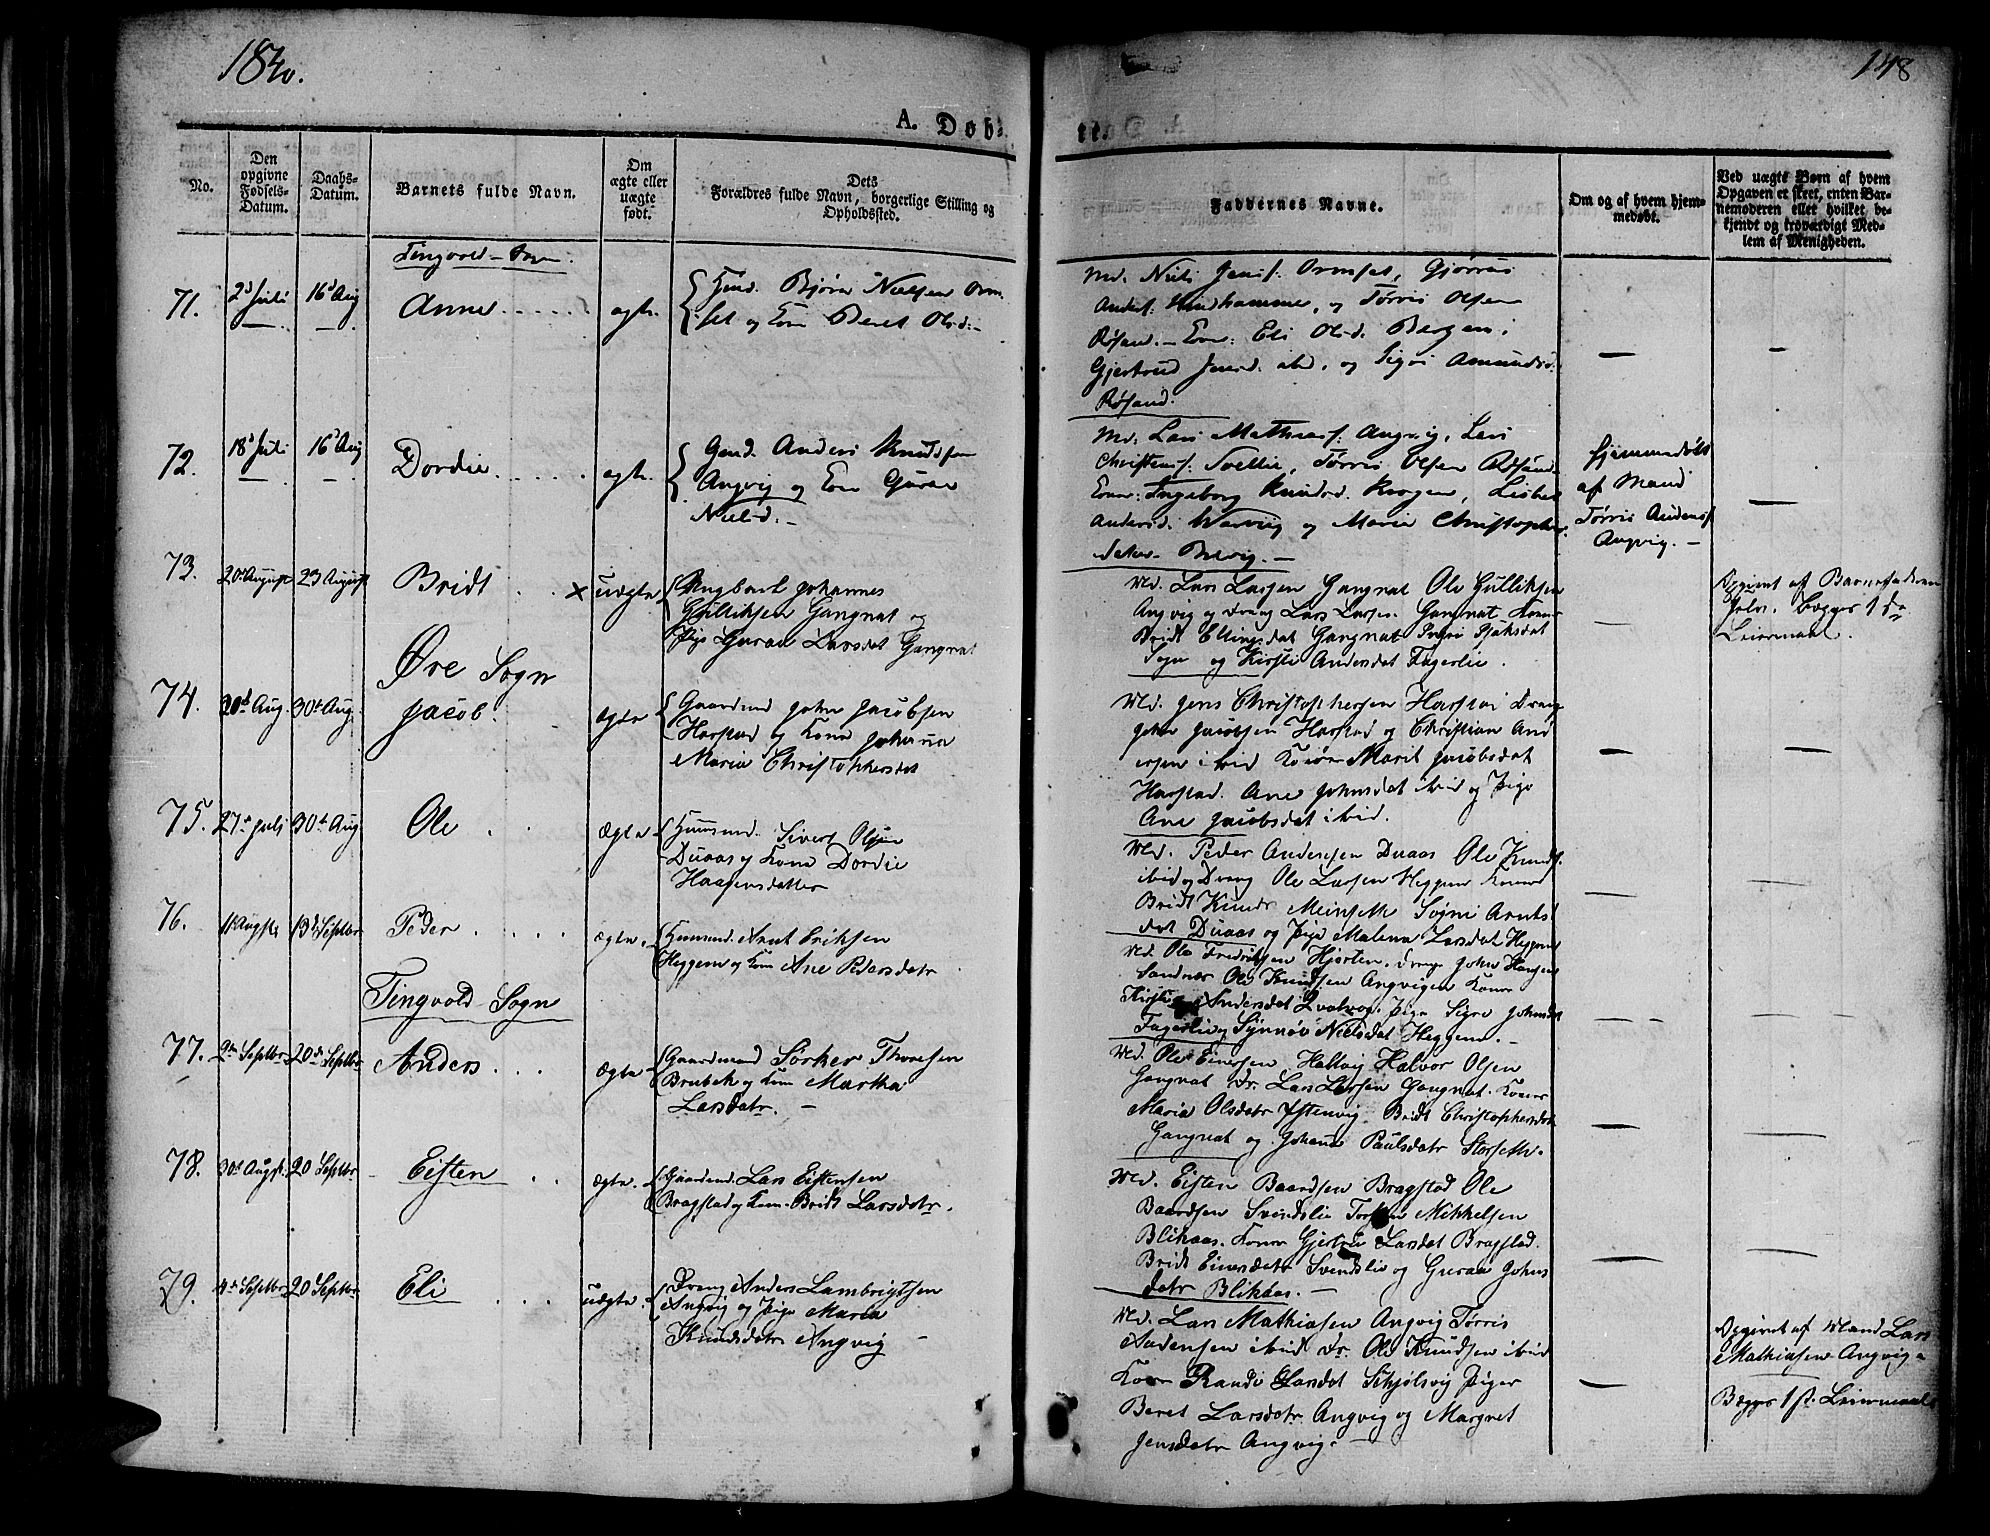 1840.
148
A. Døb-
te.
No.
Den opgivne Fødsels-Datum.
Daabs-Datum.
Barnets fulde Navn.
Om ægte eller uægte født.
Dets Forældres fulde Navn, borgerlige Stilling og Opholdssted.
Faddernes Navne.
Om og af hvem hjemmedøbt.
Ved uægte Børn af hvem Opgaven er skeet, enten Barnemoderen eller hvilket bekjendt og troværdigt Medlem af Menigheden.
Tingvold
71.
2d Juli
16d Aug
Anne
ægte
Bjørn Nielsen Orm
set og Kone Beret Olsd:
Md. Niels Jens. Ormset,
Anders. og Tørris Olsen
Røsand. Eli Olsd. Bergen:
Gjertrud og Sigri Amundsd.
Røsand.
—
—
72.
18d Juli
16d Aug
Dordie
ægte
Gmd. Anders Knudsen
Angvig og Kone Guroe
Nielsd.
Md. Lars Mathias. Angvig, Lars
Christens. Tørris Olsen
Ingeborg Knudsd. Lisbet
Andersd. og Marie Christopher
Hjemmedøbt
af Mand
Tørris Anders.
Angvig.
—
73.
20d August
23 August
Bridt
× uægte
Ungkarl Johannes
Gulliksen Gangnat og
Pige Guroe Larsdat Gangnat
Md. Lars Larsen Gangnat Ole Gulliksen
Angvig og Dreng Lars Larsen Gangnat Koner
Bridt Ellingsdat Gangnat
og Kirsti Andersdat Fagerlie.
—
Opgivet af Barnefaderen
selv. Begges 1ste
Leiermaal.
Øre Sogn
74.
30d Aug.
Jacob.
ægte
Gaardmd John Jacobsen
Harstad og Kone Johanna
Maria Christophersdat
Md. Jens Christophersen Harstad Dreng
John Jacobsen Harstad og Christian And
ersen ibid Koner Marit Jacobsdat
Harstad. Ane Johnsdat ibid og Pige
Ane Jacobsdat ibid.
—
—
75.
27d Juli
30d Aug
Ole
ægte
Huusmd. Sivert Olsen
Duaas og Kone Dordie
Haagensdatter
Md. Peder Andersen Duaas Ole Knuds.
ibid og Dreng Ole Larsen Heggem Koner
Bridt Knuds Meinseth Sigri Arnts
dat Duaas og Pige Malena Larsdat Heggem
—
—
76.
11d Augst
13d Septbr
Peder
ægte
Huusmd Arnt Eriksen
Heggem og Kone Ane Pedersdatr
Md. Ole Fredriksen Hjorten. Dreng John Hansen
Sandnæs Ole Knudsen Angvigen Koner
Kirsti Andersdat Pige Sigre Johnsdat
Fagerlie og Synnøv Nielsdat Heggem.
—
—
Tingvold Sogn
77.
2d Septbr
20d Septbr
Anders
ægte
Gaardmand Sørker Thoresen
Brubek og Kone Martha
Larsdatr.
Md. Ole Einersen Hallvig Halvor Olsen
Gangnat Dr. Lars Larsen Gangnat. Koner
Maria Olsdatr Bridt Christophersdat
Gangnat og Johanna Paulsdatr Storseth.
—
—
78.
30d Augst.
20 Septbr
Eisten
ægte
Gaardmd. Lars Eistensen
Bragstad og Kone Bridt Larsdatr.
Md. Eisten Baardsen Bragstad Ole
Baardsen Svendslie Torsten Mikkelsen
Blikaas. Koner Gjertru Larsdat Bragstad.
Bridt Einersdatr Svendslie og Guroe Johns
datr Blikaas.
—
—
79.
4de Septbr
20 Septbr
Eli
uægte
Dreng Anders Lambrigtsen
Angvig og Pige Maria
Knudsdatr Angvig
Md. Lars Mathiasen Angvig Tørris
Andersen ibid Dr. Ole Knudsen ibid
Koner Randi Larsdat Skjølsvig Piger
Beret Larsdatr Angvig og Margret
Jensdatr Angvig.
—
Opgivet af Mand Lars
Mathiasen Angvig
Begges 1ste Leiermaal